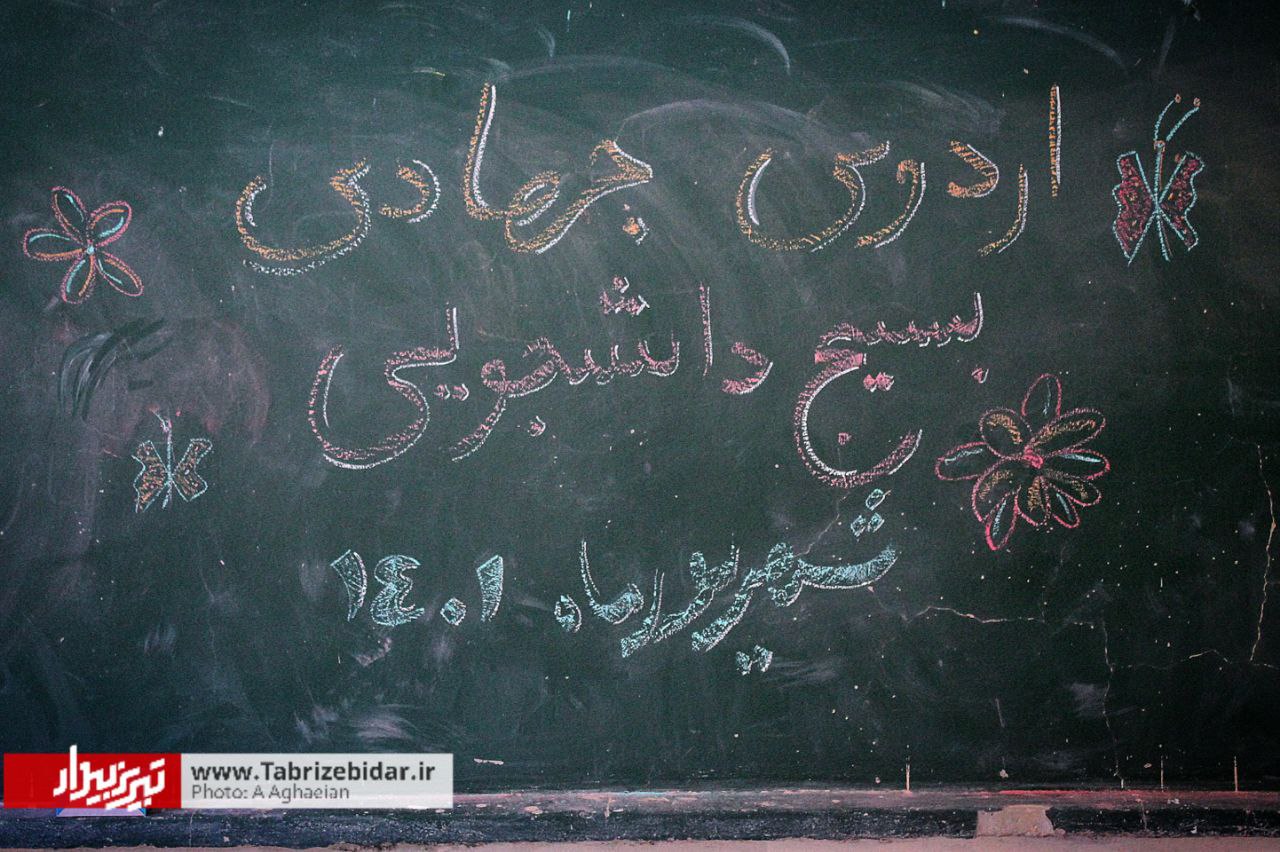 اردوی جهادی
بسیج دانشجویی
شهریور ماه ۱۴۰۱
تبریز بیدار
www.Tabrizebidar.ir
Photo: A.Aghaeian